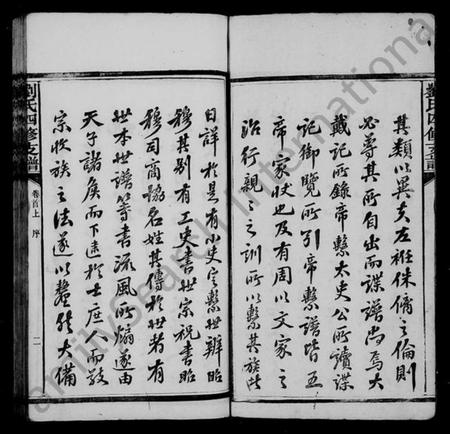 其類以與夫左袵侏𠌯之倫則
必尊其所自出而諜譜尚焉大
戴記所錄帝繫太史公所讀諜
記御覽所引帝繫譜皆五
帝家狀也及有周以文家之
治行親之之訓所以繫其族此
日詳於是有小史定繫世辨昭
穆其別有工史書世宗祝書昭
穆司商協名姓其傳於世者有
世本世譜等書流風所煽遂由
天子諸侯而下逮於士庶人而敬
宗收族之法遂以釐然大備
劉氏四修支譜
卷首上 序
二
劉氏四修支譜
amilySearch International